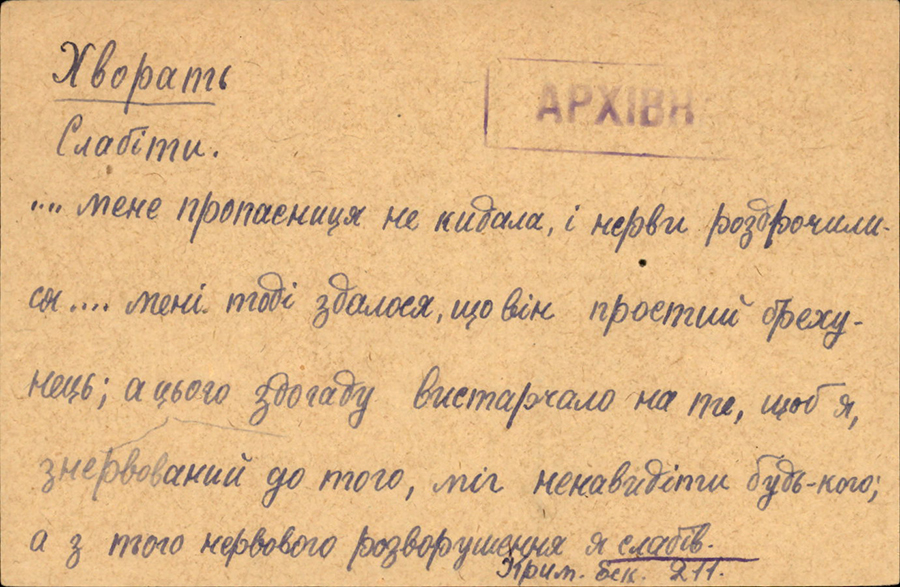 Хворать
АРХІВН
Слабіти.
.... мене пропасниця не кидала, і нерви роздрочили-
ся.... мені тоді здалося, що він простий бреху-
нець; а цього здогаду вистарчало на те, щоб я,
знервований до того, міг ненавидіти будь-кого;
а з того нервового розворушення я слабів.
Крим. Бек. 211.